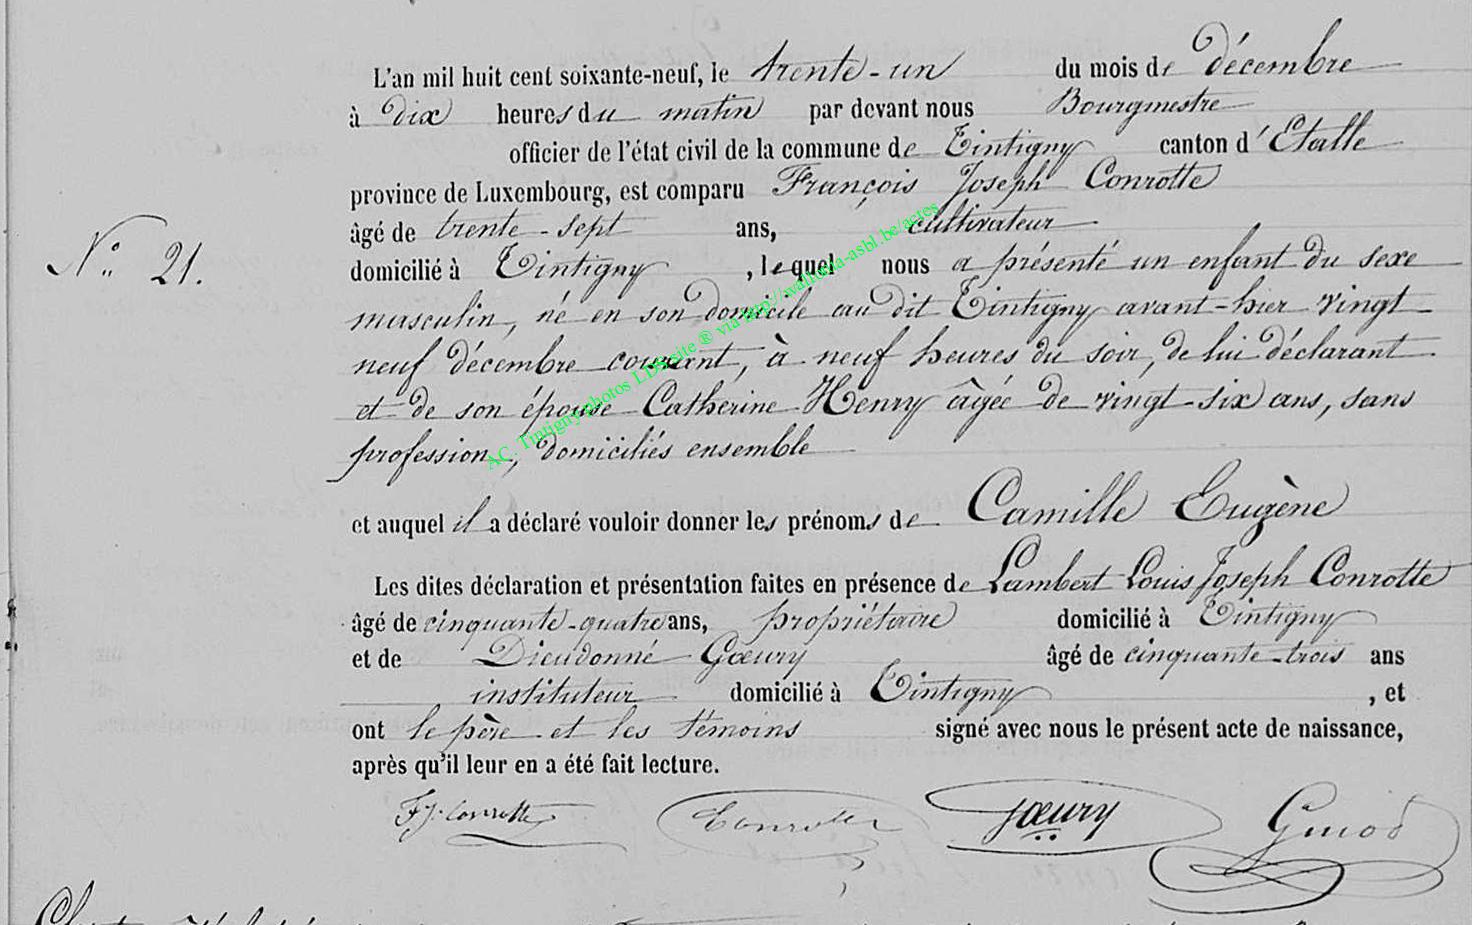 L'an mil huit cent soixante-neuf, le trente-un du mois de décembre
à dix heures du matin par devant nous Bourgmestre
officier de l'état civil de la commune de Tintigny canton d'Etalle
province de Luxembourg, est comparu François Joseph Conrotte
âgé de trente-sept ans, cultivateur
N° 21.
domicilié à Tintigny, lequel nous a présenté un enfant du sexe
masculin, né en son domicile au dit Tintigny avant-hier vingt
neuf décembre courant, à neuf heures du soir, de lui déclarant
et de son épouse Catherine Henry âgée de vingt-six ans, sans
profession, domiciliés ensemble
et auquel il a déclaré vouloir donner les prénoms de Camille Eugène
Les dites déclaration et présentation faites en présence de Lambert Louis Joseph Conrotte
âgé de cinquante-quatre ans, propriétaire domicilié à Tintigny
et de Dieudonné Gœury âgé de cinquante-trois ans
instituteur domicilié à Tintigny, et
ont le père et les témoins signé avec nous le présent acte de naissance,
après qu'il leur en a été fait lecture.
F.J. Conrotte Conrotte Gœury
AC. Tintigny photos LDS site ® via http://wallonia-asbl.be/actes